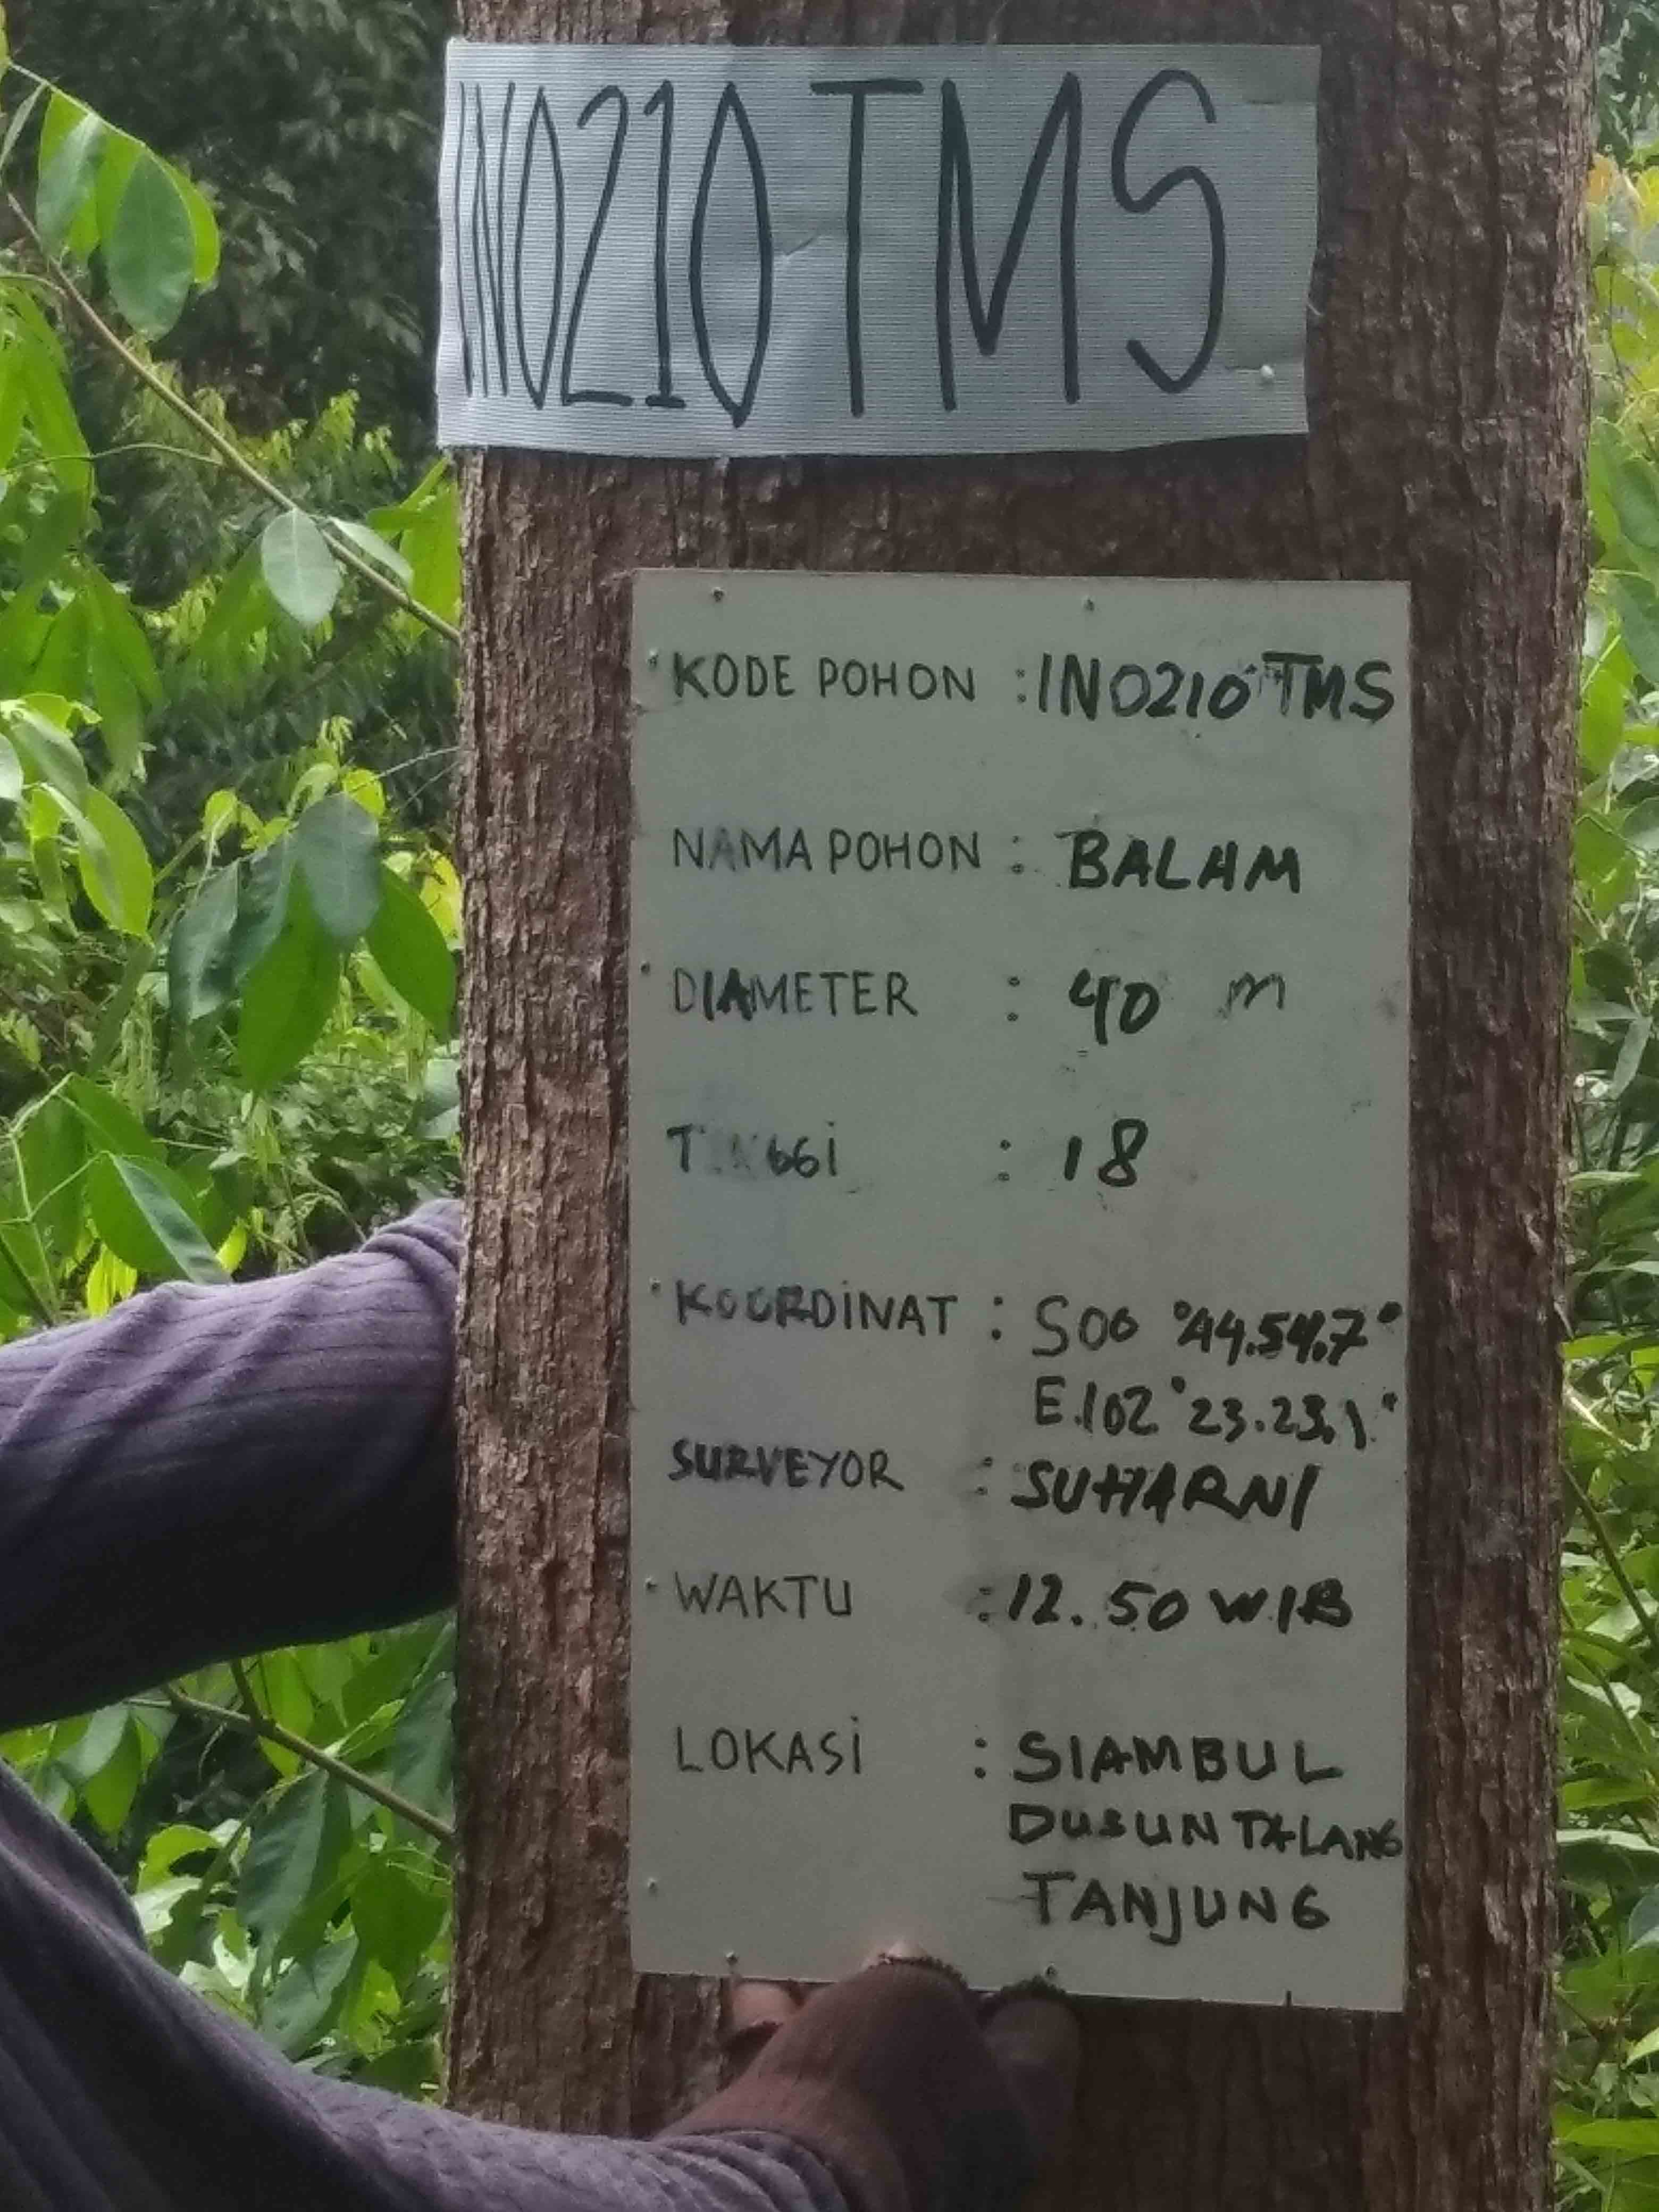 IN0210 TMS
KODE POHON : IN0210 TMS
NAMA POHON : BALAM
DIAMETER : 40 m
TINGGi : 18
KOORDiNAT : S00 °44.54.7"
E.102°23.23.1"
SURVEYOR : SUHARNI
WAKTU : 12.50 WIB
LOKASi : SIAMBUL
DUSUN TALANG
TANJUNG